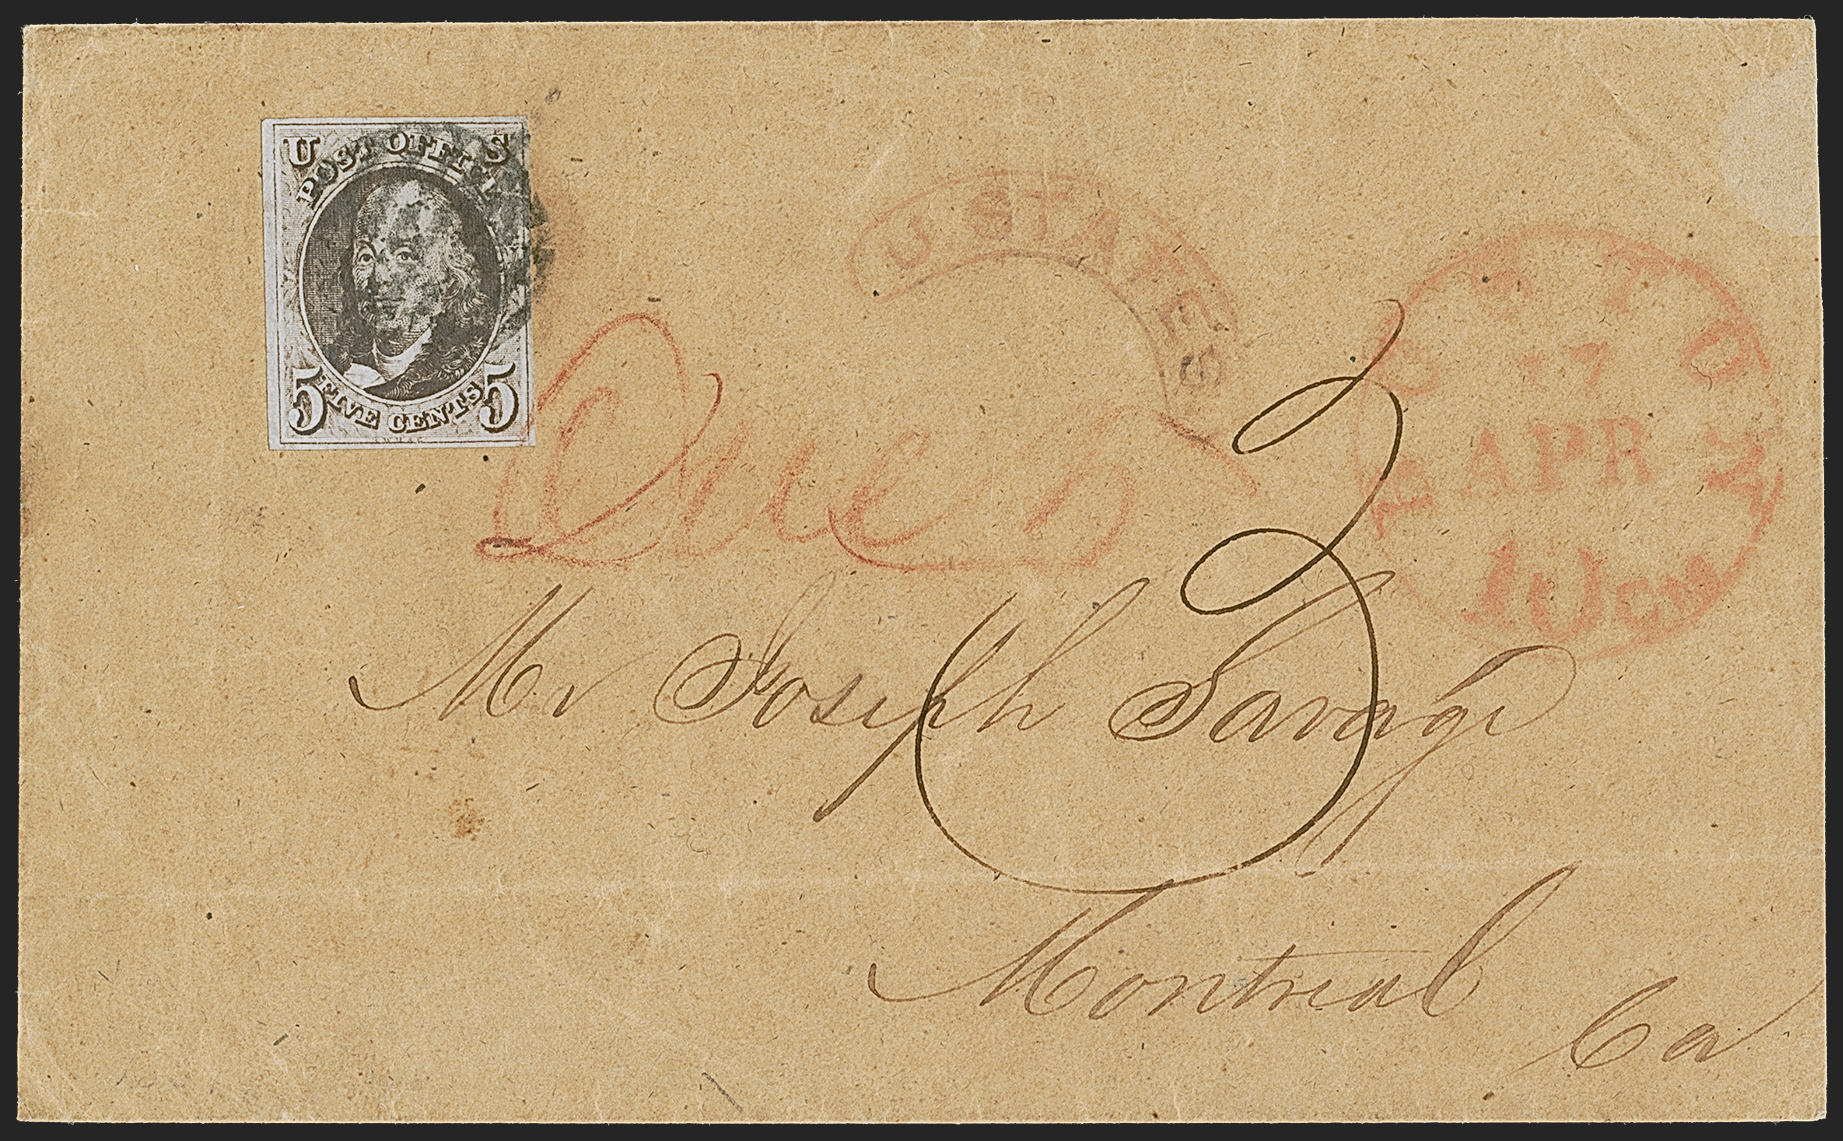 U S
POST OFFICE
5 FIVE CENTS 5
U STATES
BOSTON
17
APR
10 cts
Due 5
3
Mr Joseph Savage
Montreal
Ca